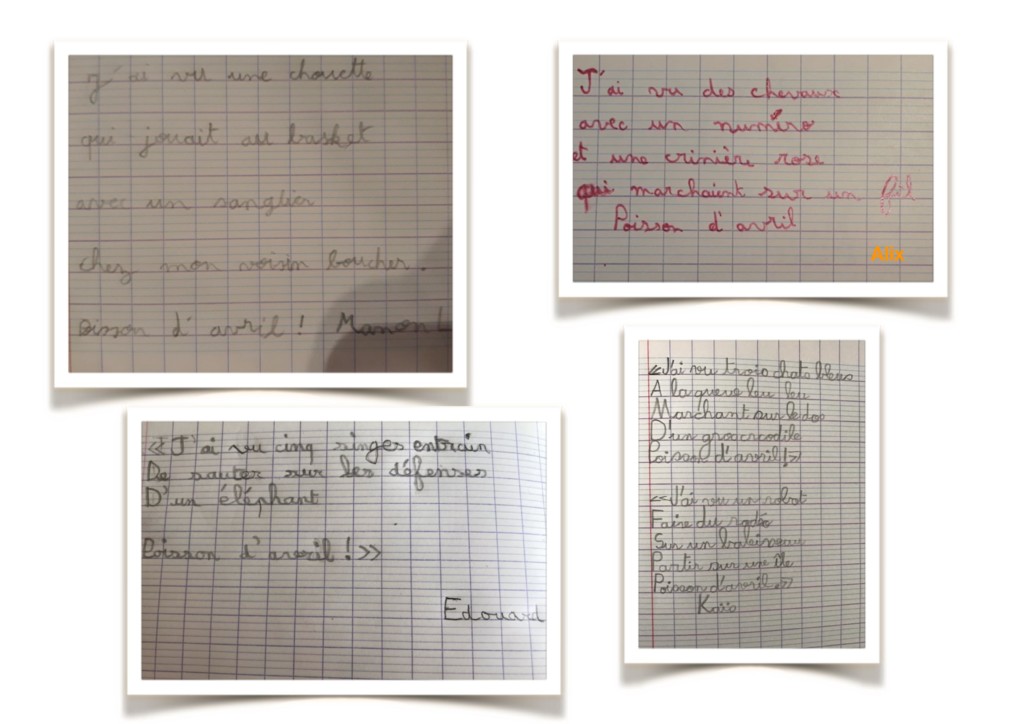 J'ai vu une chouette
qui jouait au basket
avec un sanglier
chez mon voisin boucher.
Poisson d'avril ! Manon !
J'ai vu des chevaux
avec un numéro
et une crinière rose
qui marchaient sur un fil
Poisson d'avril
Alix
«J'ai vu cinq singes entrain
De sauter sur les défenses
D'un éléphant
Poisson d'avril !»
Edouard
«J'ai vu trois chats bleus
A la queue leu leu
Marchant sur le dos
D'un gros crocodile
Poisson d'avril !»
«J'ai vu un robot
Faire du rodéo
Sur un baleineau
Partir sur une île
Poisson d'avril»